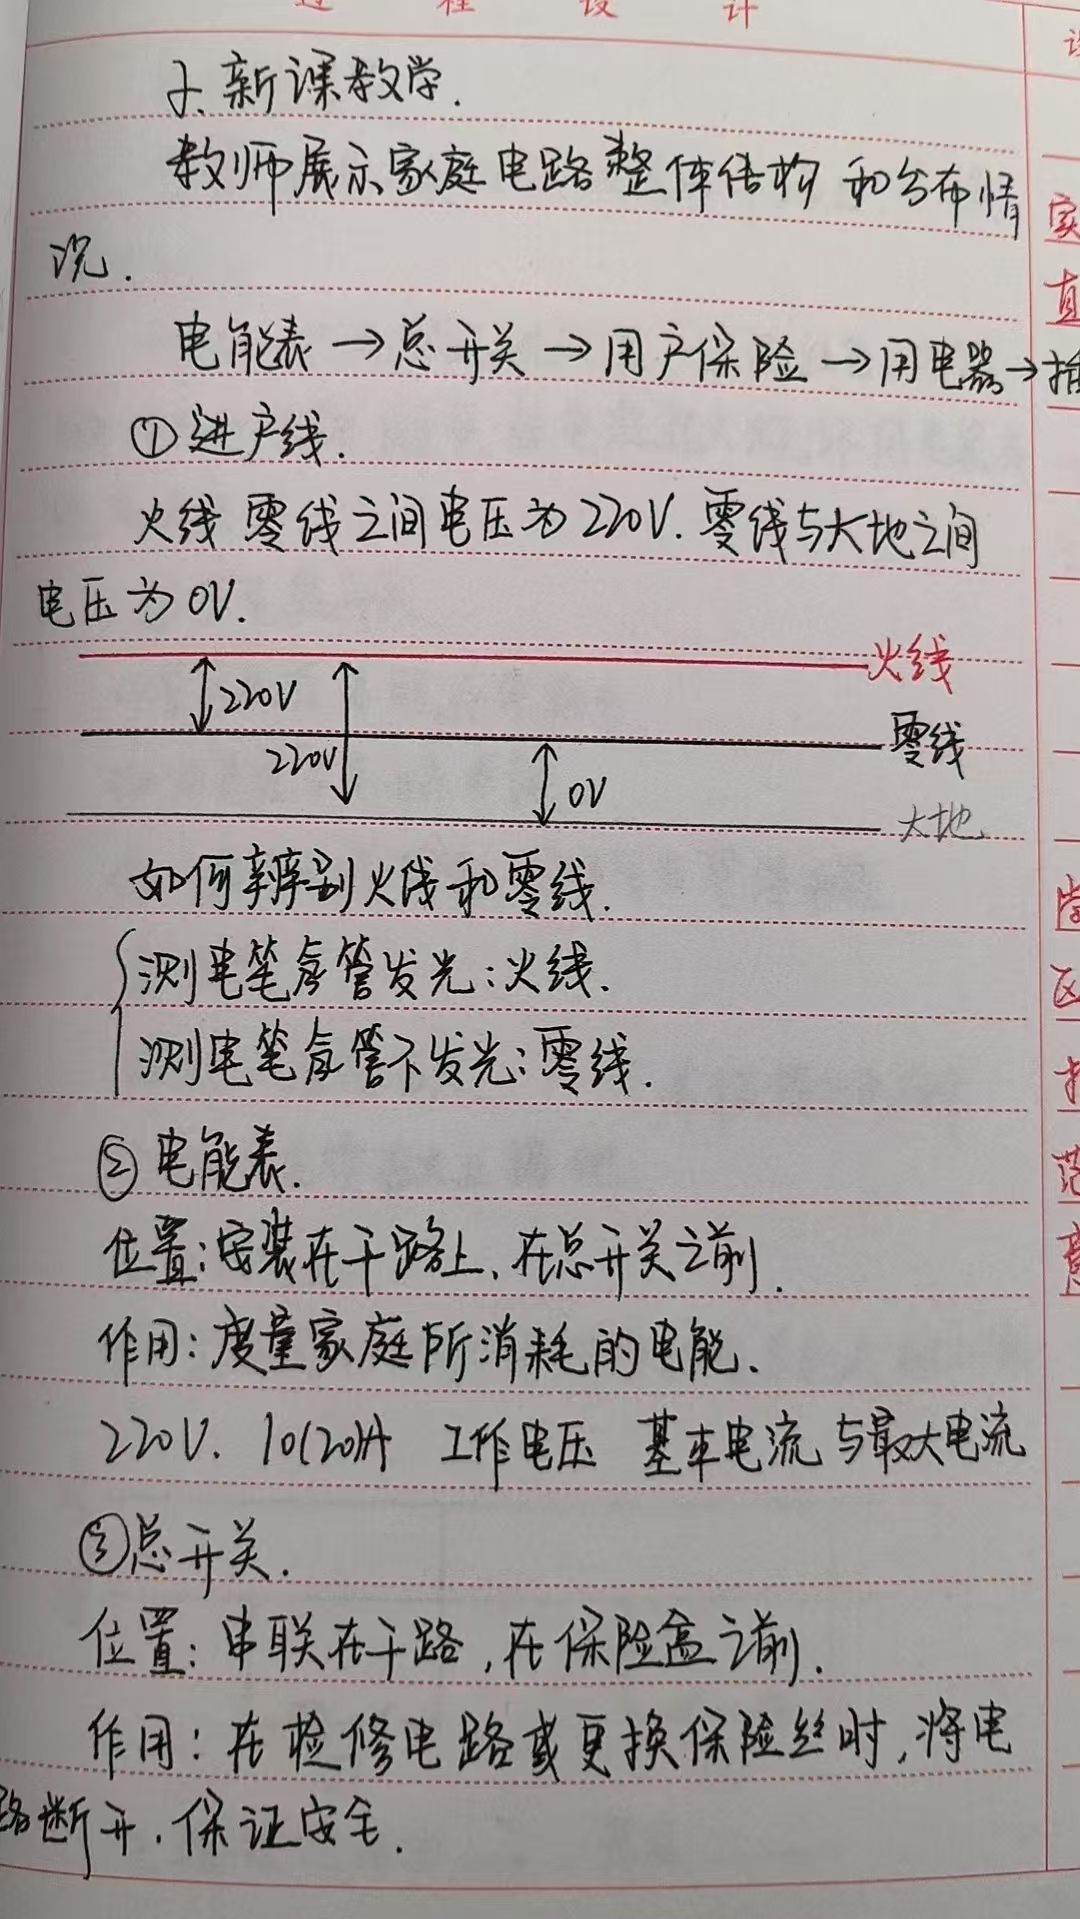 过程设计
2、新课教学.
教师展示家庭电路整体结构和分布情
况.
电能表→总开关→用户保险→用电器→插
①进户线.
火线 零线之间电压为220V.零线与大地之间
电压为0V.
火线
220V
零线
220V
0V
大地
如何辨别火线和零线.
测电笔氖管发光:火线.
测电笔氖管不发光:零线.
②电能表.
位置:安装在干路上、在总开关之前.
作用:度量家庭所消耗的电能.
220V. 10(20)A 工作电压 基本电流与最大电流
③总开关.
位置:串联在干路,在保险盒之前.
作用:在检修电路或更换保险丝时,将电
路断开.保证安全.
家
直
学
区
范
意